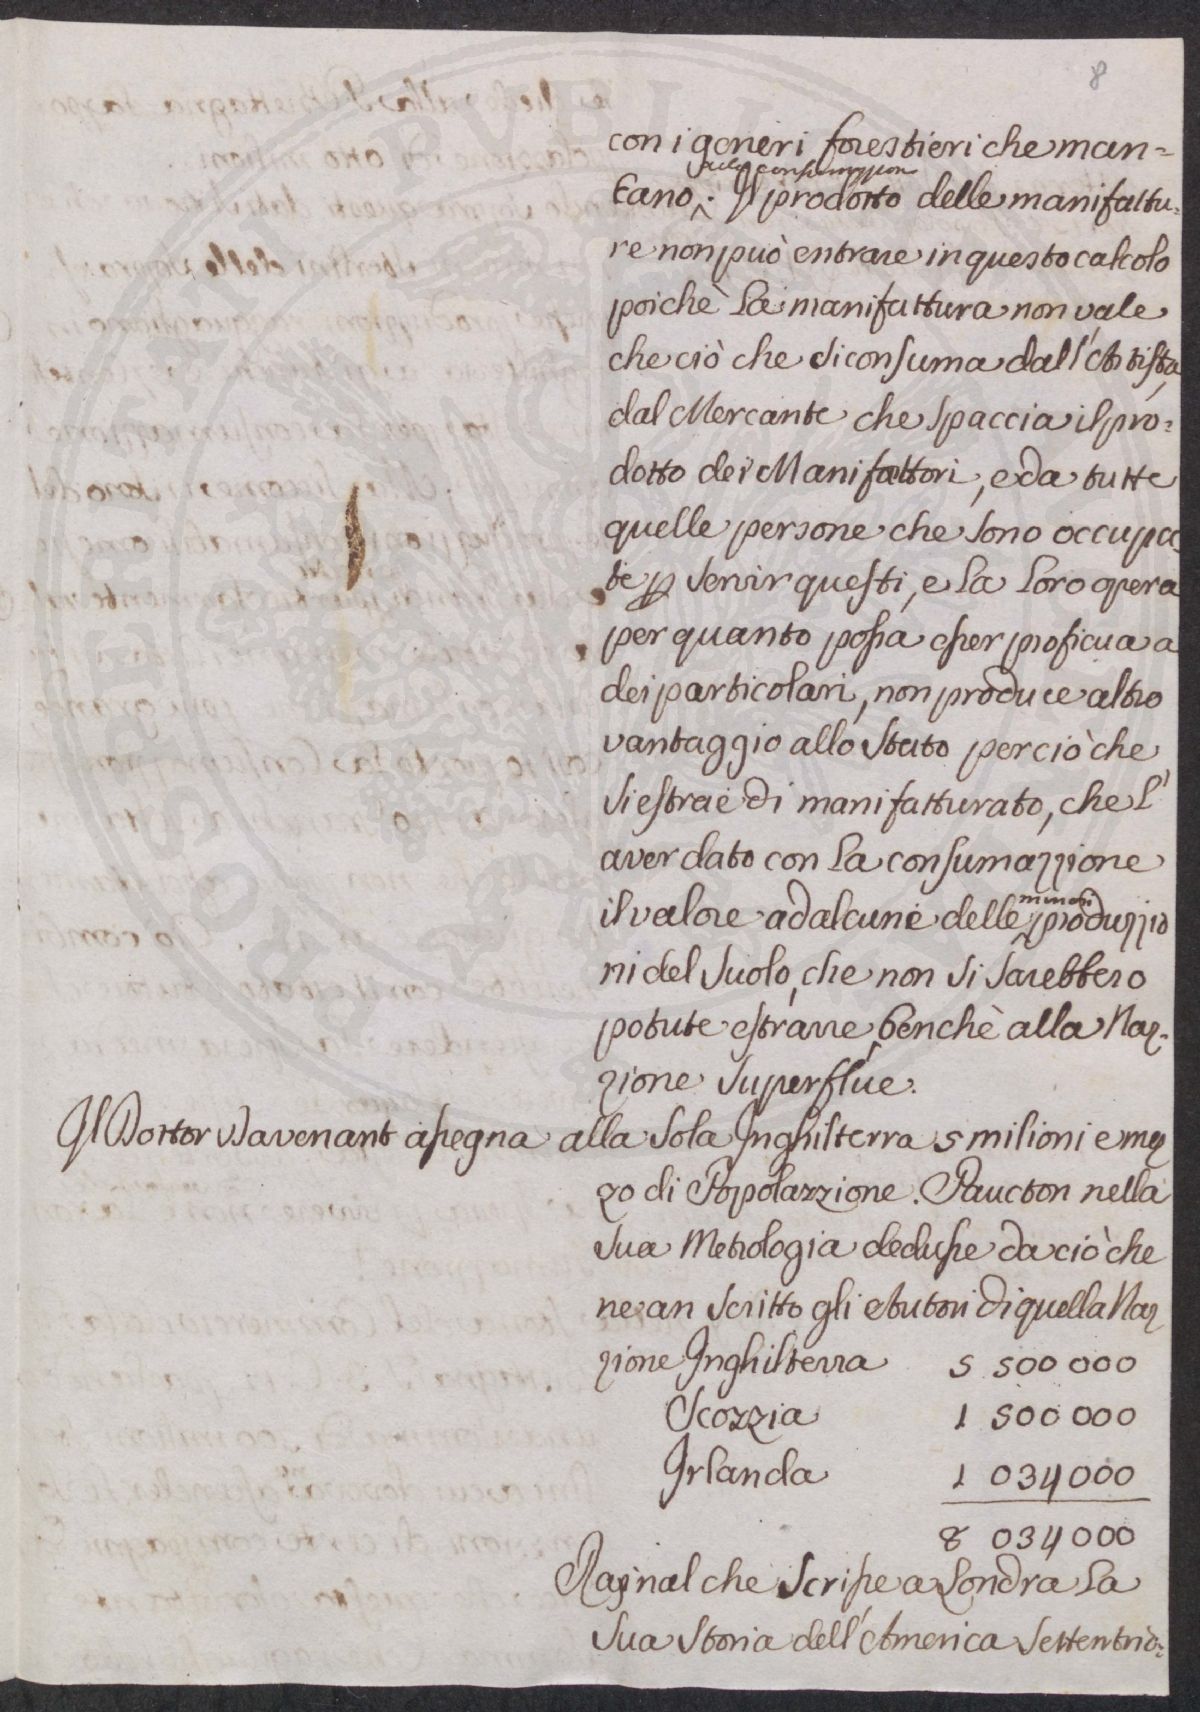 8
con i generi forestieri che man=
sulla consumazzion
tano. Il prodotto delle manifattu=
re non può entrare in questo calcolo
poichè la manifattura non vale
che ciò che si consuma dall'Artista,
dal Mercante che spaccia il pro=
dotto dei Manifattori, e da tutte
quelle persone che sono occupa=
te p servir questi, e la loro opera
per quanto possa esser proficua a
dei particolari, non produce altro
vantaggio allo Stato perciò che
si estrae di manifatturato, che l'
aver dato con la consumazzione
minori
il valore ad alcune delle produzzio
ni del suolo, che non si sarebbero
potute estrarre, benchè alla Naz=
zione superflue.
Il Dottor Davenant assegna alla sola Inghilterra 5 milioni e mez
zo di Popolazzione. Paucton nella
sua Metrologia dedusse da ciò che
ne an scritto gli Autori di quella Naz
zione Inghilterra 5 500 000
Scozzia 1 500 000
Irlanda 1 034 000
8 034 000
Raynal che scrisse a Londra la
sua Storia dell'America Settentrio=